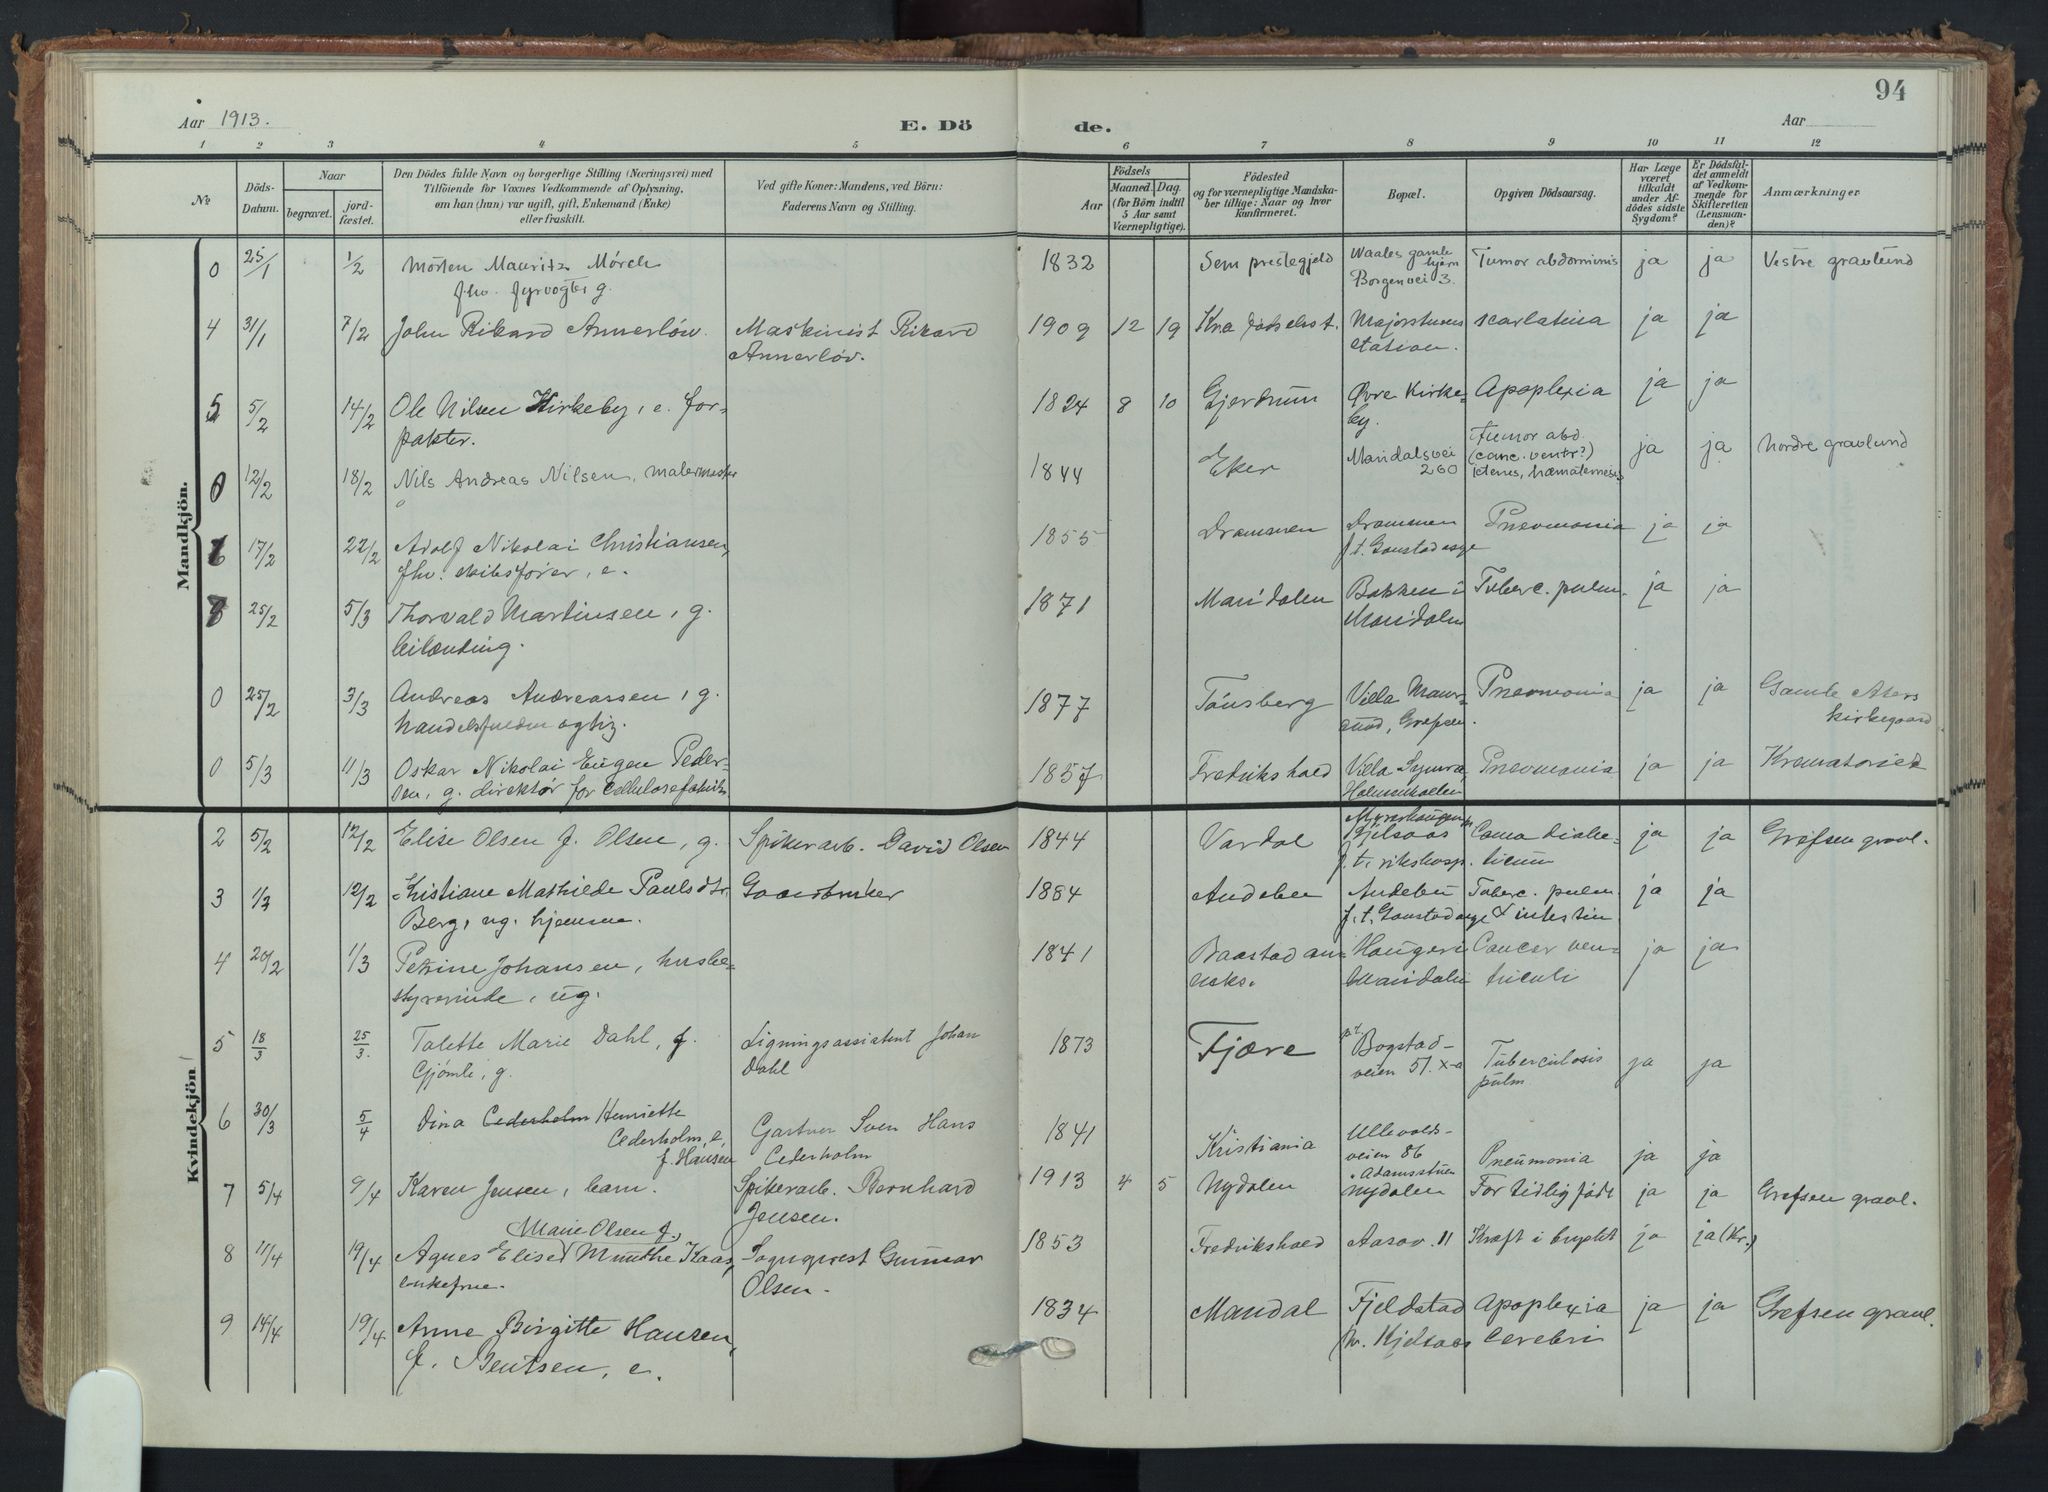 94
Aar 1913.
E. Dö
de.
Aar
1 2 3 4 5 6 7 8 9 10 11 12
№
Döds-
Datum.
Naar
begravet.
jord-
fæstet.
Den Dödes fulde Navn og borgerlige Stilling (Næringsvei) med
Tilföiende for Voxnes Vedkommende af Oplysning,
om han (hun) var ugift, gift, Enkemand (Enke)
eller fraskilt.
Ved gifte Koner: Mandens, ved Börn:
Faderens Navn og Stilling.
Födsels
Aar
Maaned. Dag.
(for Börn indtil
5 Aar samt
Værnepligtige).
Födested
og for værnepligtige Mandska-
ber tillige: Naar og hvor
konfirmeret.
Bopæl.
Opgiven Dödsaarsag.
Har Læge
været
tilkaldt
under Af-
dödes sidste
Sygdom?
Er Dödsfal-
det anmeldt
af Vedkom-
mende for
Skifteretten
(Lensman-
den)?
Anmærkninger
Mandkjön.
0 25/1 1/2 Morten Mauritz Mörch 1832 Sem prestegjeld Waales gamle Tumor abdominis ja ja Vestre gravlund
fhv. fyrvogter g. hjem
Borgenvei 3.
4 31/1 7/2 John Rikard Annerlöv. Maskinist Rikard 1909 12 19 Kra fødselsst. Majorstuens scarlatina ja ja
Annerlöv. station.
5 5/2 14/2 Ole Nilsen Kirkeby, e. for- 1824 8 10 Gjerdrum Øvre Kirke- Apoplexia ja ja
pakter. by.
0 12/2 18/2 Nils Andreas Nilsen, malermester 1844 Eker Mandalsvei Tumor abd. ja ja Nordre gravlund
260 (canc. ventr?)
icterus, hæmatemesis
6 17/2 22/2 Adolf Nikolai Christiansen, 1855 Drammen Drammen Pnevmonia ja ja
fhv. skibsfører, e. f.t. Gaustad asyl
7 25/2 5/3 Thorvald Martinsen, g. 1871 Maridalen Bakken i Tuberc. pulm. ja ja
leilænding. Maridalen
0 25/2 3/3 Andreas Andreassen, g. 1877 Tönsberg Villa Maur- Pnevmonia ja ja Gamle Akers
handelsfuldmægtig. sund, Grefsen. kirkegaard
0 5/3 11/3 Oskar Nikolai Eugen Peder- 1857 Fredrikshald Villa Synvæ Pnevmonia ja ja Krematoriet
sen, g. direktör for Cellulosefabrik Holmenkollen
Kvindekjön
2 5/2 12/2 Elise Olsen f. Olsen, g. Spikerarb. David Olsen 1844 Vardal Myrerhaugen Coma diabe- ja ja Grefsen gravl.
Kjelsaas
f.t. rikshosp. ticum
3 1/2 12/2 Kristiane Mathilde Paulsdtr. Gaardbruker 1884 Andebu Andebu Tuberc. pulm. ja ja
Berg, ug. hjemme. f.t. Gaustad asyl & intestin
4 20/2 1/3 Petrine Johansen, husbe- 1841 Baastad an- Haugen i Cancer ven- ja ja
styrerinde, ug. neks. Maridalen triculi
5 18/3 25/3. Talette Marie Dahl, f. Ligningsassistent Johan 1873 Fjære Bogstad- Tuberculosis ja ja
Gjömle, g. Dahl veien 51. X-a pulm
6 30/3 5/4 Dina Cederholm Henriette Gartner Sven Hans 1841 Kristiania Ullevolds- Pneumonia ja ja
Cederholm, e, Cederholm veien 86
f. Hansen Adamstuen
7 5/4 9/4 Karen Jensen, barn. Spikerarb. Bernhard 1913 4 5 Nydalen Nydalen For tidlig födt ja ja Grefsen gravl.
Jensen.
Marie Olsen f.
8 11/4 19/4 Agnes Elise Munthe Kaas, Sogneprest Gunnar 1853 Fredrikshald Aasav. 11 Kræft i brystet ja ja (Kr.)
enkefrue. Olsen.
9 14/4 19/4 Anne Birgitte Hansen, 1834 Mandal Fjeldstad Apoplexia ja ja Grefsen gravl.
f. Bentsen, e. pr. Kjelsaas cerebri